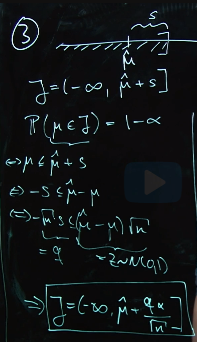 ③
S
μ̂
J = (-∞, μ̂ + s]
P(μ ∈ J) = 1-α
⇔ μ ≤ μ̂ + s
⇔ -s ≤ μ̂ - μ
⇔ -√n s ≤ (μ̂ - μ) √n
= q = Z ~ N(0,1)
⇒ J = (-∞, μ̂ + qα/√n]